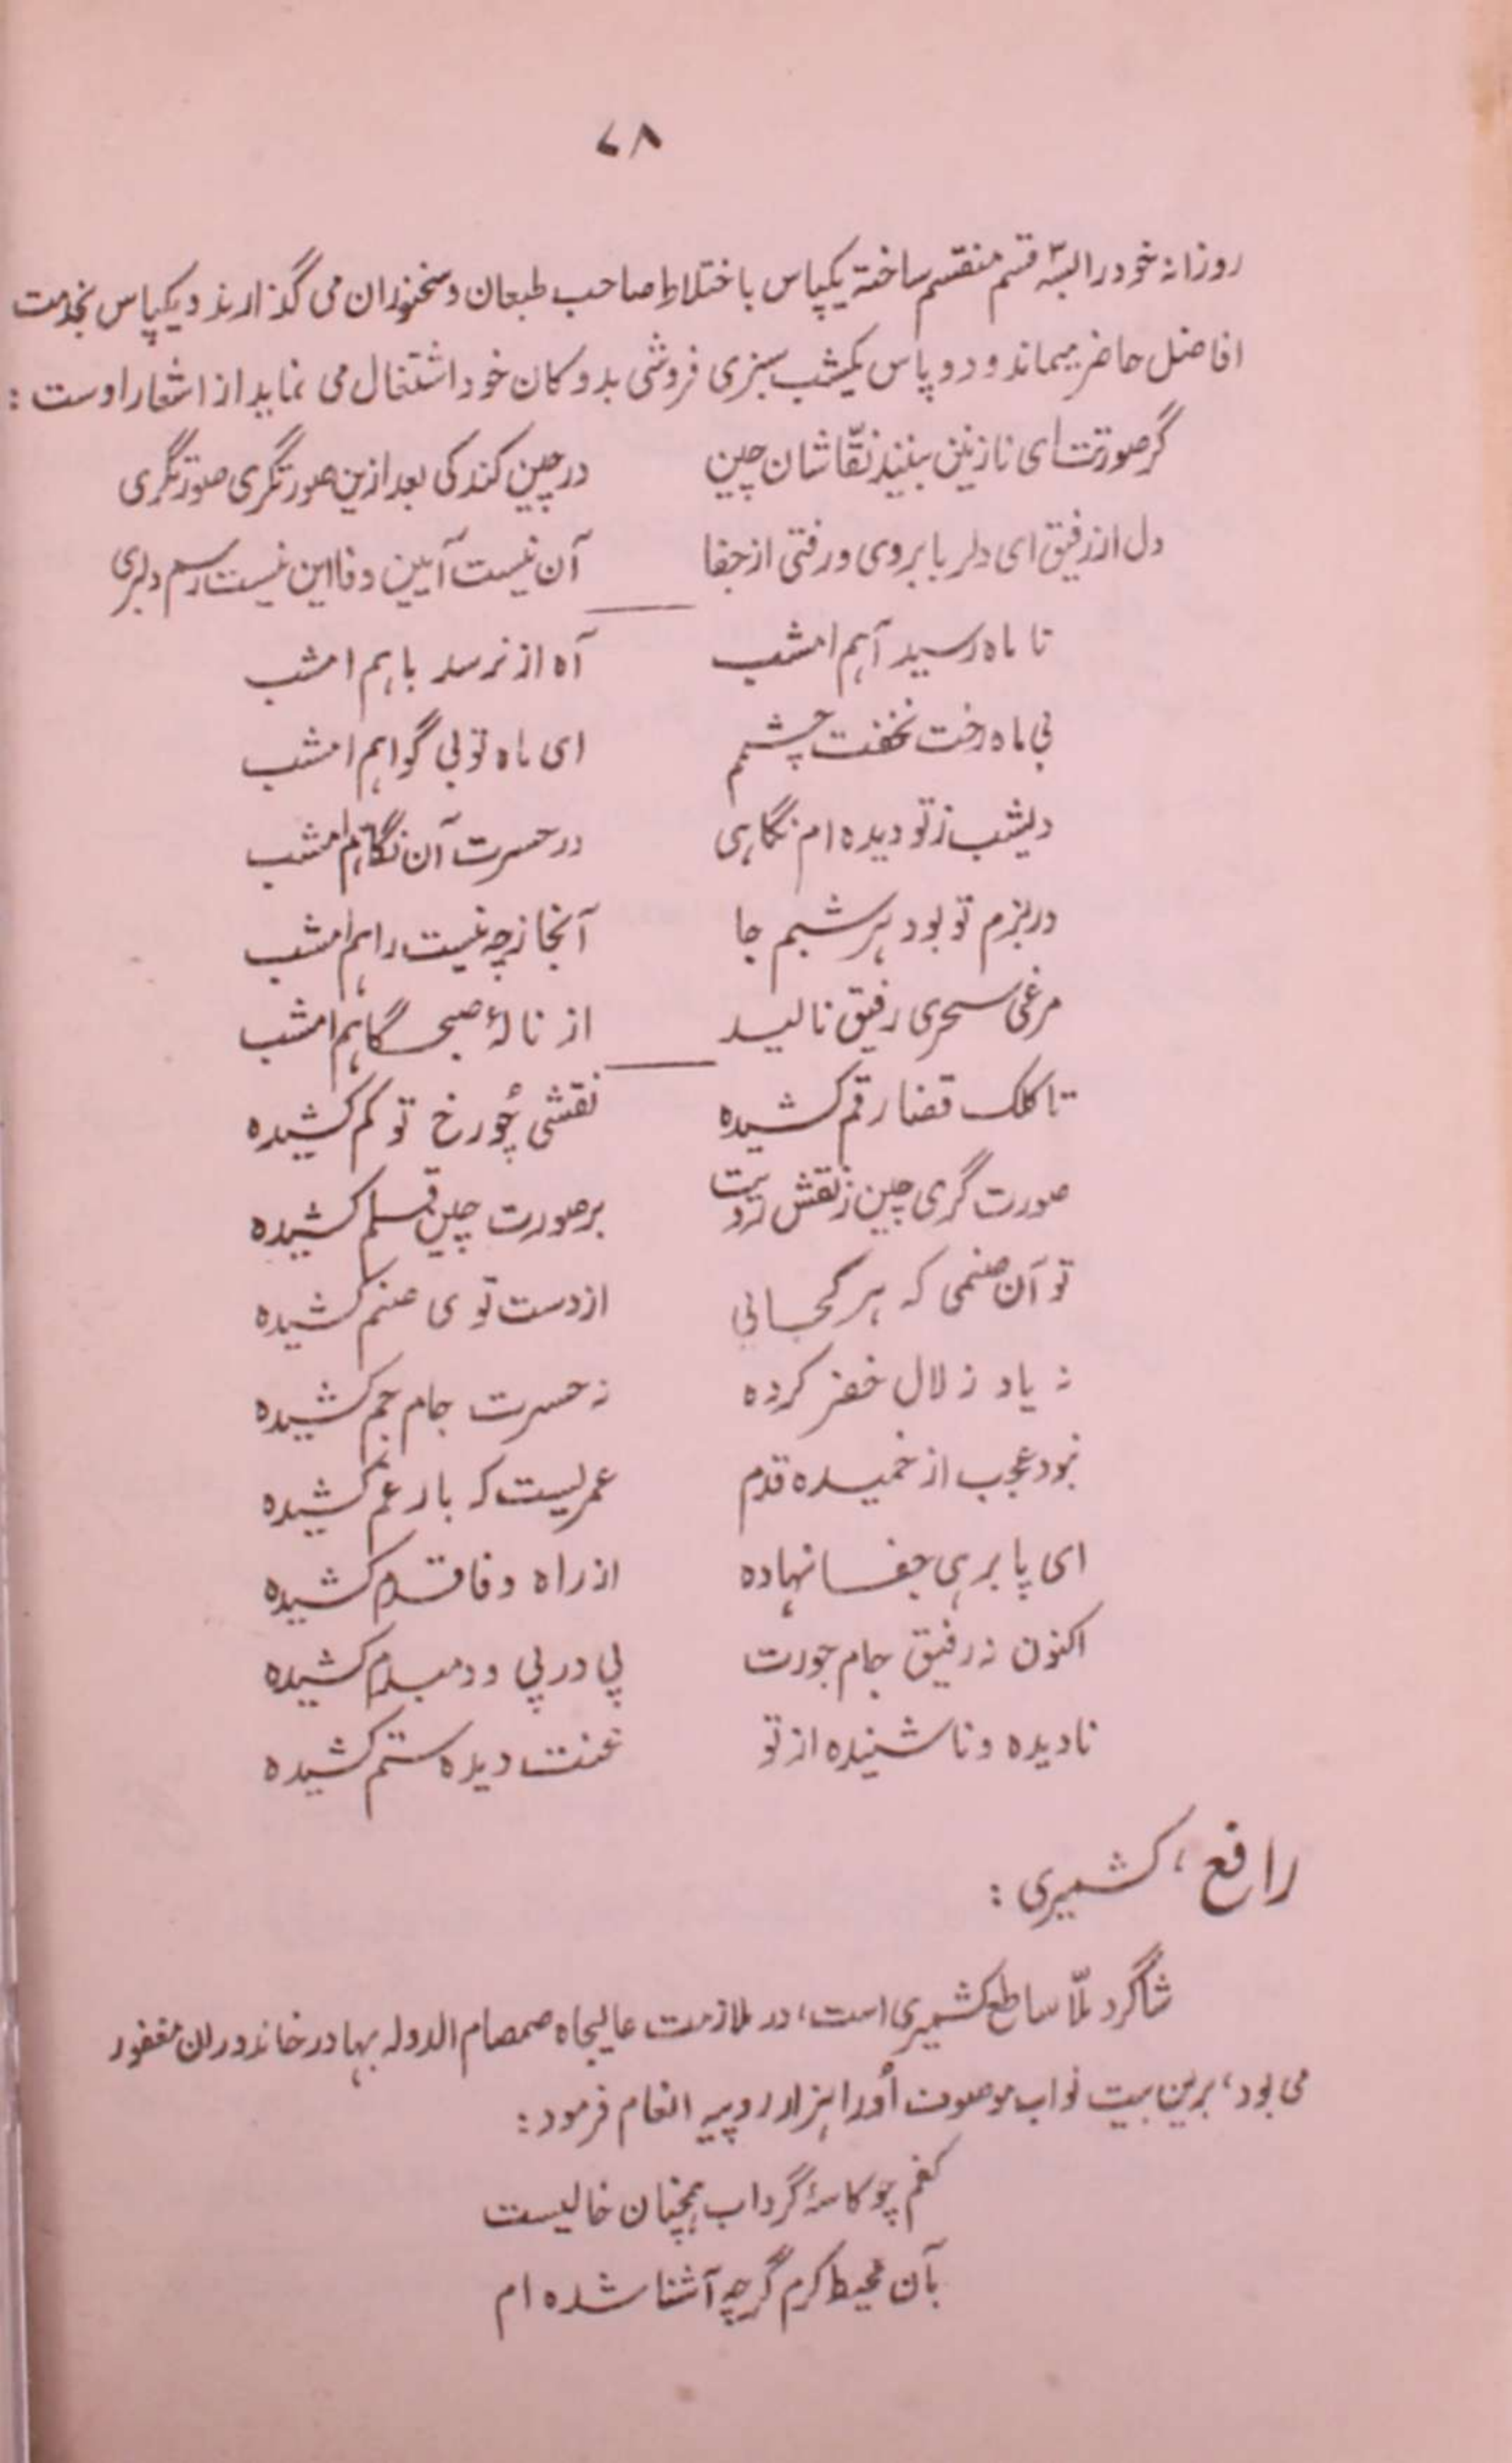 ۷۸
روزانه خود را البسّه قسم منقسم ساخته یکپاس باختلاط صاحب طبعان و سخنوران می گذارند و یکپاس بخدمت
افاضل حاضر میماند و دو پاس یکشب سبزی فروشی بدوکان خود اشتغال می نماید از اشعار اوست :
گر صورتت ای نازنین بینند نقّاشان چین
در چین کند کی بعد ازین صورتگری صورتگری
دل از رفیق ای دلربا بروی و رفتی از جفا
آن نیست آیین وفا این نیست رسم دلبری
تا ماه رسید آهم امشب
آه از نرسد باهم امشب
بی ماه رخت نخفت چشمم
ای ماه توبی گواهم امشب
دیشب ز تو دیده ام نگاهی
در حسرت آن نگاهم امشب
در بزم تو بود هر شبم جا
آنجا ز چه نیست راهم امشب
مرغی سحری رفیق نالید
از نالۀ صبحگاهم امشب
تا کلک قضا رقم کشیده
نقشی چُو رخ تو کم کشیده
صورت گری چین ز نقش رویت
بر صورت چین قلم کشیده
تو آن صنمی که هر کجائی
از دست توی صنم کشیده
نه یاد زلال خضر کرده
نه حسرت جام جم کشیده
نبود عجب از خمیده قدم
عمریست که بار غم کشیده
ای پا برهی جفا نهاده
از راه وفا قدم کشیده
اکنون نه رفیق جام جورت
پی در پی و دمبدم کشیده
نادیده و ناشنیده از تو
دیده ستم کشیده
رافع ، کشمیری :
شاگرد ملّا ساطع کشمیری است، در ملازمت عالیجاه صمصام الدوله بهادر خاندوران مغفور
می بود، برین بیت نواب موصوف اُورا هزار روپیه انعام فرمود :
کفم چو کاسۀ گرداب همچنان خالیست
بآن محیط کرم گرچه آشنا شده ام